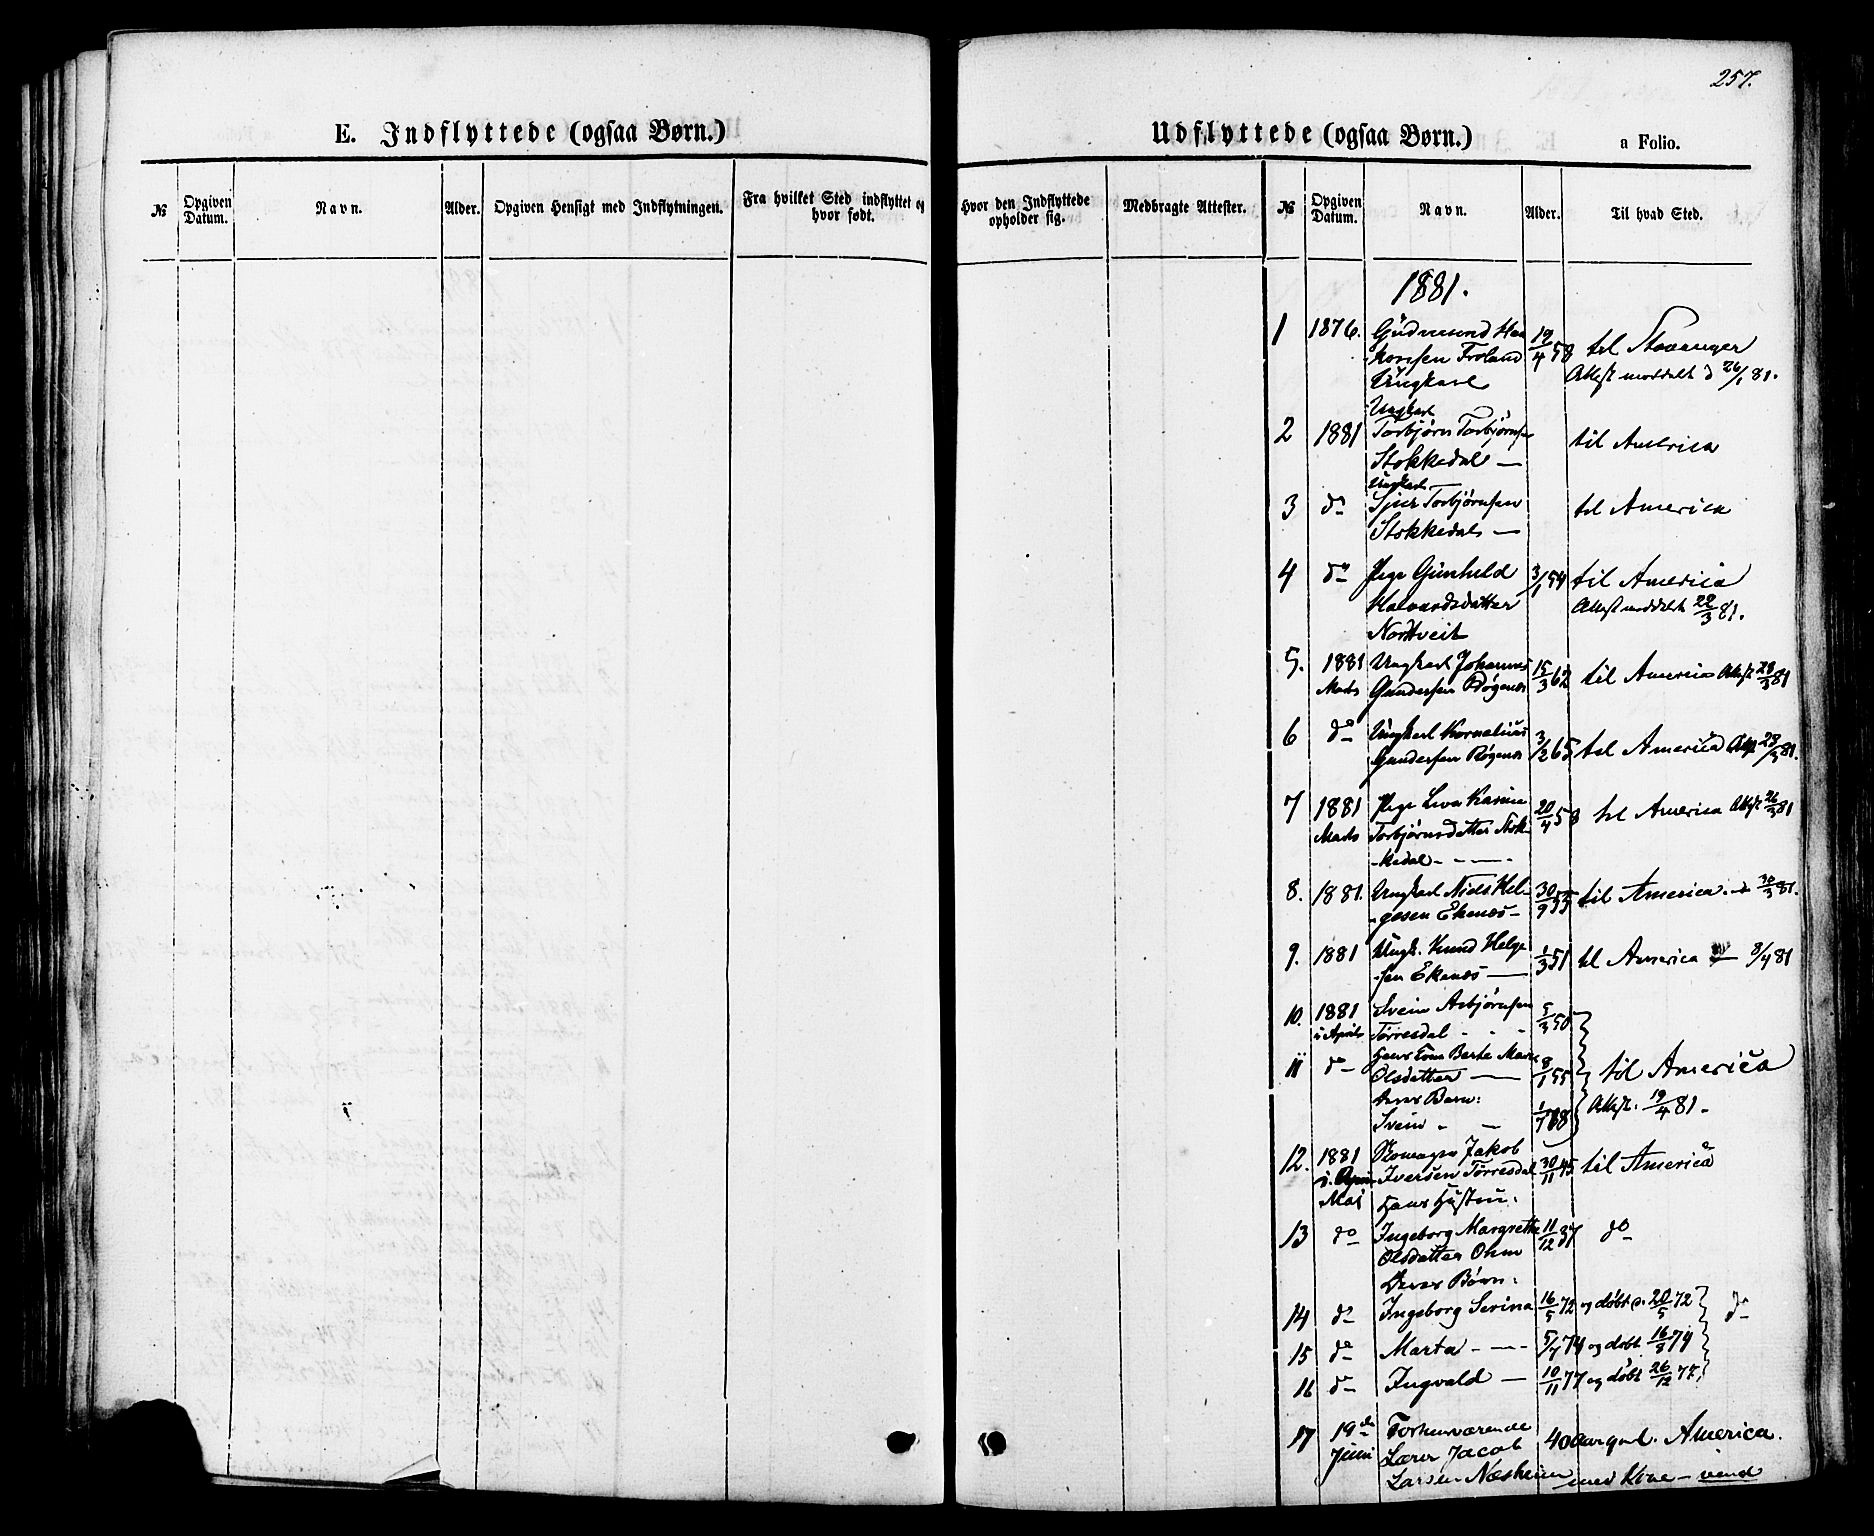 257.
E. Indflyttede (ogsaa Børn.)
Udflyttede (ogsaa Børn.)
a Folio.
№ Opgiven Datum. Navn. Alder. Opgiven Hensigt med Indflytningen. Fra hvilket Sted indflyttet og hvor født.
Hvor den Indflyttede opholder sig. Medbragte Attester. № Opgiven Datum. Navn. Alder. Til hvad Sted.
1881.
1 1876. Gudmund Haa 19/4 58 til Stavanger
konsen Froland Attest meddelt d 26/1 81.
Ungkarl
Ungkarl
2 1881 Torbjørn Torbjørnsen til America
Stokkedal —
Ungkarl
3 do Sjur Torbjørnsen til America
Stokkedal —
4 do Pige Gunhild 3/1 54 til America
Halvardsdatter Attest meddelt 22/3 81.
Nordtveit
5. 1881 Ungkarl Johannes 15/3 62 til America Attest 28/3 81
Marts Gundersen Bøgenæs
6 do Ungkarl Kornelius 3/2 65 til America 28/3 81.
Gundersen
7 1881 Pige Lva Karine 20/4 58 til America Attest 26/3 81
Marts Torbjørnsdatter Stok-
-kedal - - - -
8. 1881. Ungkarl Niels Hel- 30/9 55 til America - 30/3 81.
-gesen Ekenæs -
9. 1881 Ungk. Knud Helge 1/3 51 til America 8/4 81
-sen Ekenæs —
10. 1881 Svein Asbjørnsen 5/3 50
i April Tørresdal - - -
11 do Hans Kone Berte Marie til America
Olsdatter — 8/1 55
deres Barn: Attest: 19/4 81.
Svein - -
12. 1881 Skomager Jakob
i April Iversen Tørresdal 30/11 45 til America
Mai Hans Hustru:
13 do Ingeborg Margrethe 11/12 37 do
Olsdatter Ohm
Deres Børn:
14 do Ingeborg Serina 16/5 72 og døbt d. 20/5 72 do
15 do Marta - - - 5/7 74 og døbt 16/8 74
16 do Ingvald — 10/11 77 og døbt 26/12 77
17 19de Forhenværende
Juni Lærer Jacob 40 Aar gml. America.
Larsen Næsheim med Kone - vend